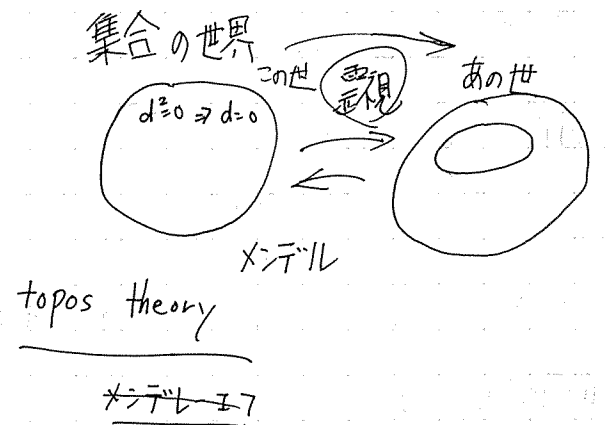 集合の世界
この世
霊視
あの世
d²=0 ⇒ d=0
メンデル
topos theory
メンデレーエフ